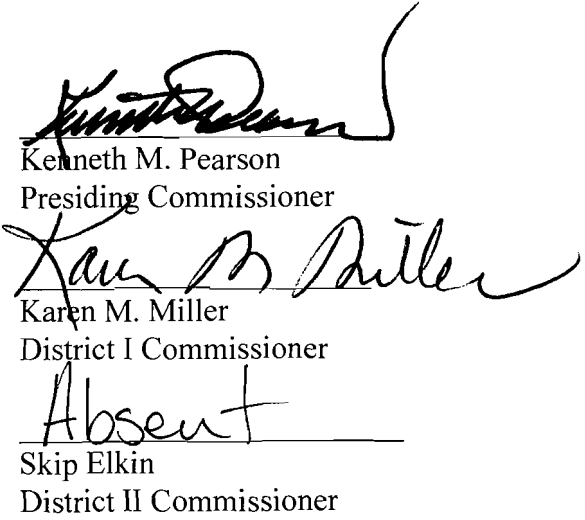 Kenneth M. Pearson
Kenneth M. Pearson
Presiding Commissioner
Karen M Miller
Karen M. Miller
District I Commissioner
Absent
Skip Elkin
District II Commissioner